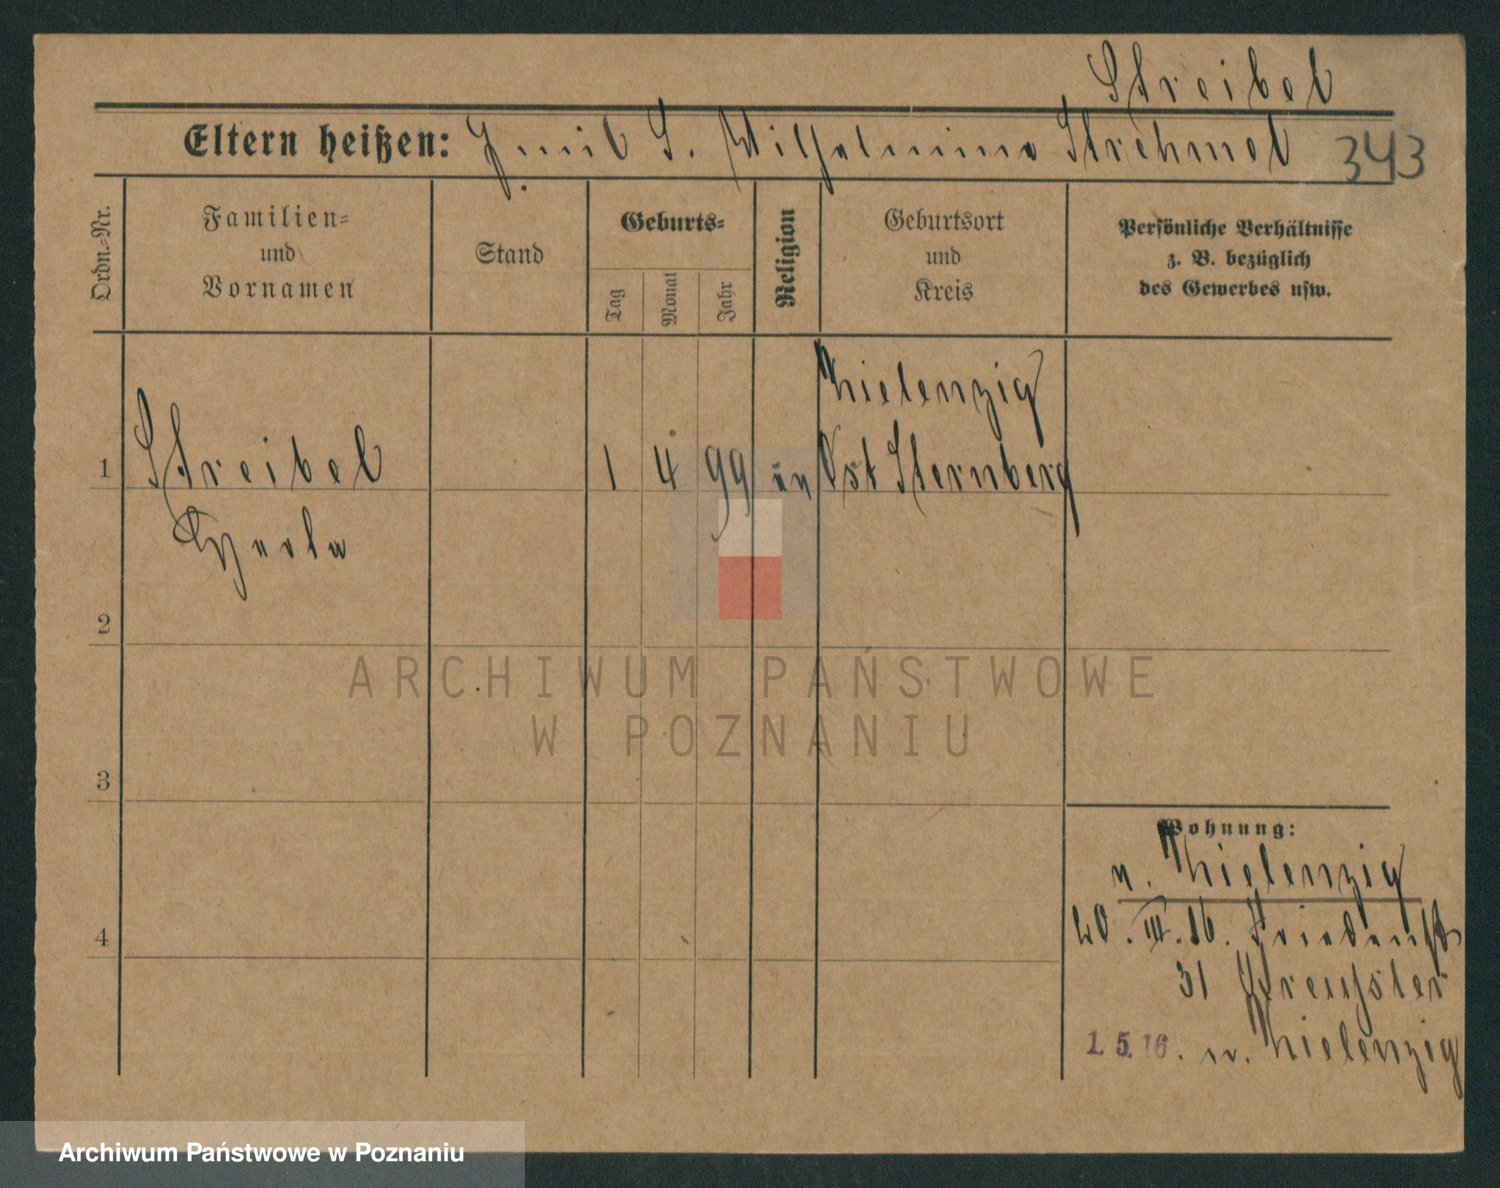 Streibel
Eltern heißen: Emil S. Wilhelmine Strehmel 343
Ordn.-Nr.
Familien-
und
Vornamen
Stand
Geburts-
Tag
Monat
Jahr
Religion
Geburtsort
und
Kreis
Persönliche Verhältnisse
z. B. bezüglich
des Gewerbes usw.
Zielenzig
1 Streibel 1 4 99 ev Ost Sternberg
2
3
Wohnung:
v. Zielenzig
4
20. III. 16. Friedenstr
31
1.5.16. n. Zielenzig
ARCHIWUM PAŃSTWOWE
W POZNANIU
Archiwum Państwowe w Poznaniu